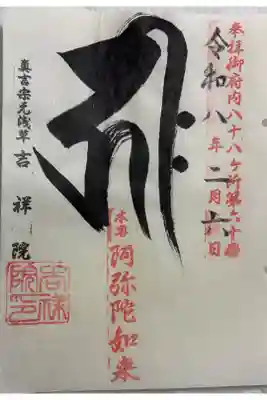 奉拝御府内八十八ヶ所第六十番
令和八年二月六日
本尊
阿弥陀如来
真言宗元浅草吉祥院
吉祥院印